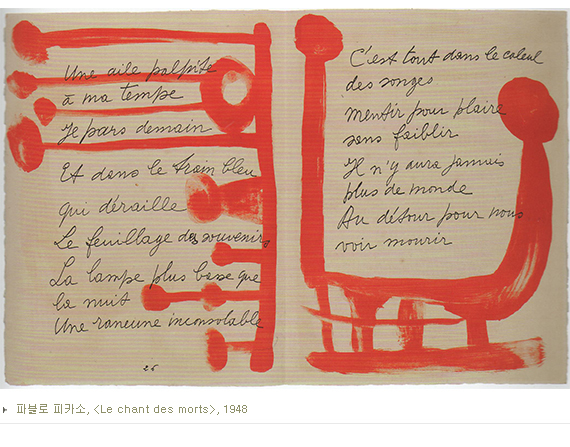 Une aile palpite
à ma tempe
Je pars demain
Et dans le train bleu
qui déraille
Le feuillage des souvenirs
La lampe plus basse que
la nuit
Une rancune inconsolable
26
C'est tout dans le calcul
des songes
Mentir pour plaire
sans faiblir
Il n'y aura jamais
plus de monde
Au détour pour nous
voir mourir
파블로 피카소, <Le chant des morts>, 1948